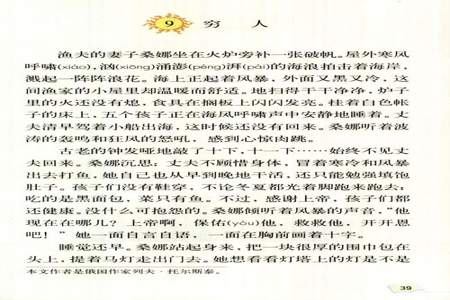 9 穷人
渔夫的妻子桑娜坐在火炉旁补一张破帆。屋外寒风
呼啸(xiào)，汹(xiōng)涌澎(péng)湃(pài)的海浪拍击着海岸，
溅起一阵阵浪花。海上正起着风暴，外面又黑又冷，这
间渔家的小屋里却温暖而舒适。地扫得干干净净，炉子
里的火还没有熄，食具在搁板上闪闪发亮。挂着白色帐
子的床上，五个孩子正在海风呼啸声中安静地睡着。丈
夫清早驾着小船出海，这时候还没有回来。桑娜听着波
涛的轰鸣和狂风的怒吼，感到心惊肉跳。
古老的钟发哑地敲了十下，十一下……始终不见丈
夫回来。桑娜沉思：丈夫不顾惜身体，冒着寒冷和风暴
出去打鱼，她自己也从早到晚地干活，还只能勉强填饱
肚子。孩子们没有鞋穿，不论冬夏都光着脚跑来跑去；
吃的是黑面包，菜只有鱼。不过，感谢上帝，孩子们都
还健康。没什么可抱怨的。桑娜倾听着风暴的声音，“他
现在在哪儿？上帝啊，保佑(yòu)他，救救他，开开恩
吧！”她一面自言自语，一面在胸前画着十字。
睡觉还早。桑娜站起身来，把一块很厚的围巾包在
头上，提着马灯走出门去。她想看看灯塔上的灯是不是
本文作者是俄国作家列夫·托尔斯泰。
39